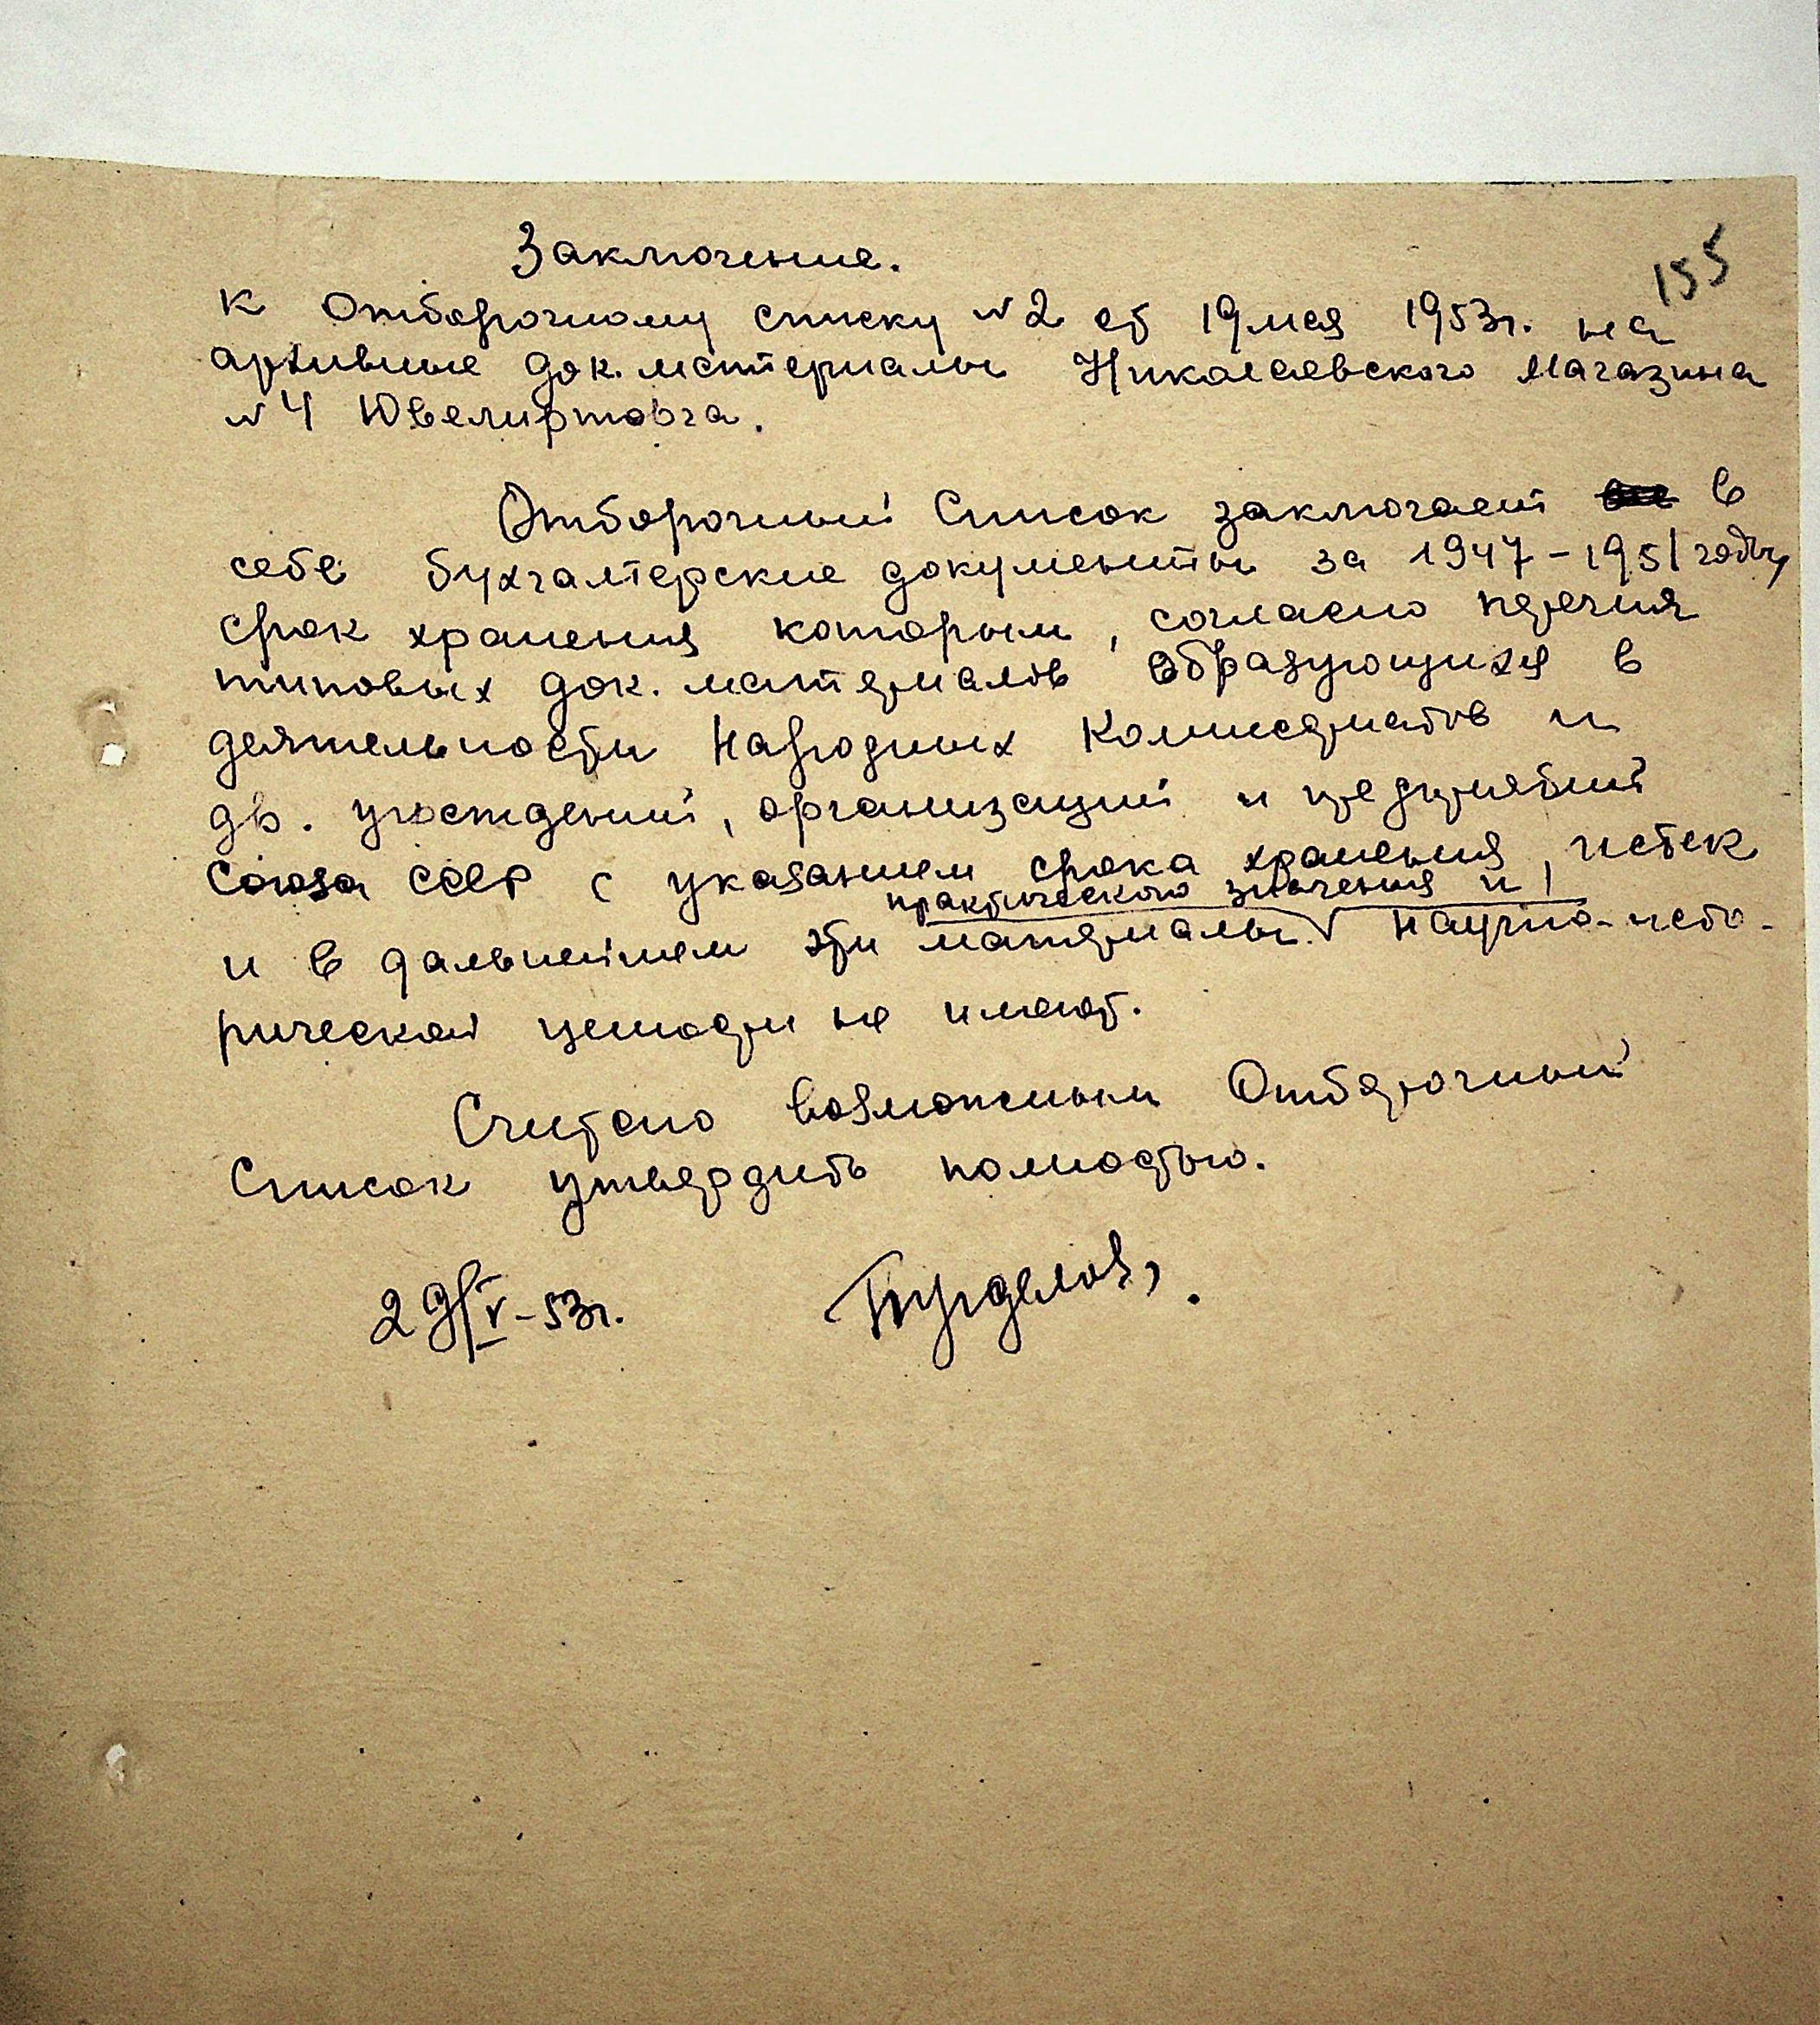 155
Заключение.
к Отборочному списку № 2 от 19 мая 1953 г. на
архивные док. материалы Николаевского Магазина
№ 4 Ювелирторга.
Отборочный Список заключает в
себе бухгалтерские документы за 1947-1951 годы,
срок хранения которым, согласно перечня
типовых док. материалов образующихся в
деятельности Народных Комиссариатов и
др. учреждений, организаций и предприятий
Союза ССР с указанием срока хранения, истек
практического значения и
и в дальнейшем эти материалы научно-исто-
рической ценности не имеют.
Считаю возможным Отборочный
Список утвердить полностью.
29/V-53г.